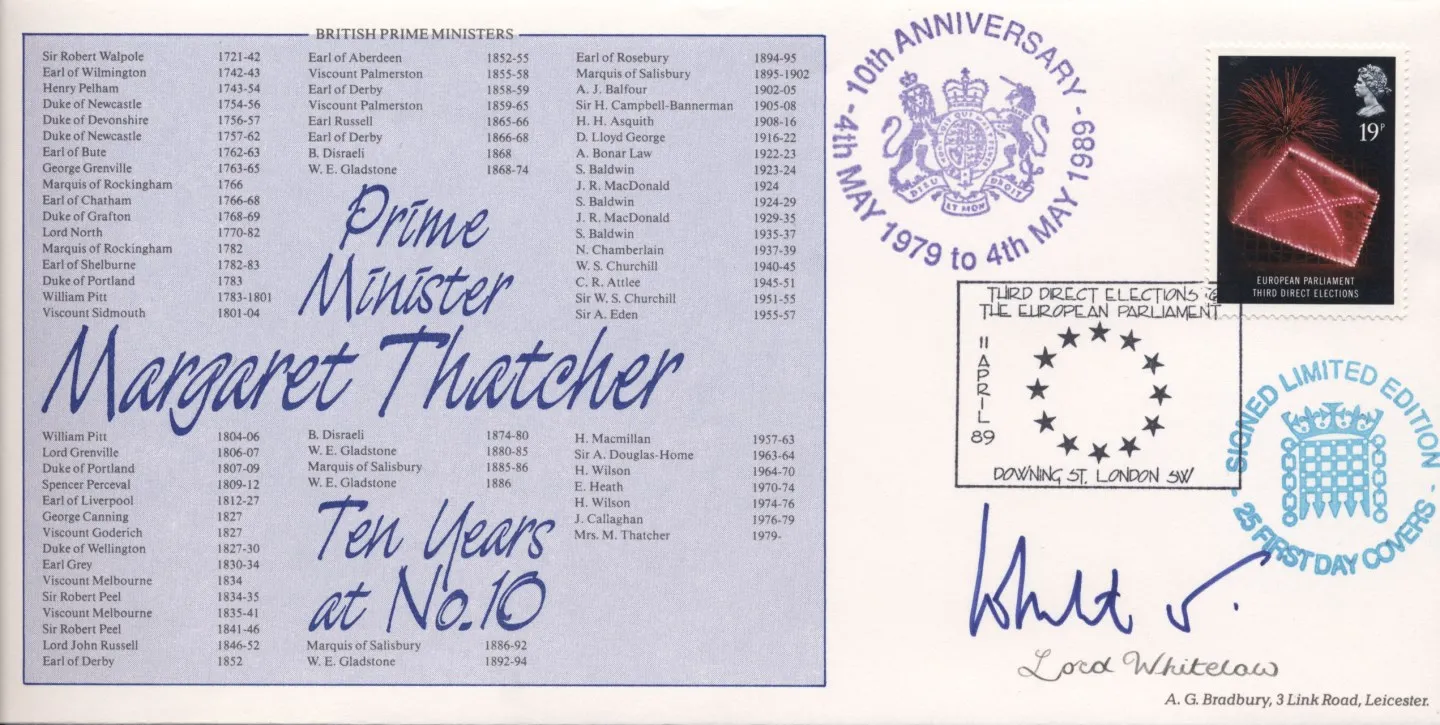 BRITISH PRIME MINISTERS
Sir Robert Walpole 1721-42
Earl of Wilmington 1742-43
Henry Pelham 1743-54
Duke of Newcastle 1754-56
Duke of Devonshire 1756-57
Duke of Newcastle 1757-62
Earl of Bute 1762-63
George Grenville 1763-65
Marquis of Rockingham 1766
Earl of Chatham 1766-68
Duke of Grafton 1768-69
Lord North 1770-82
Marquis of Rockingham 1782
Earl of Shelburne 1782-83
Duke of Portland 1783
William Pitt 1783-1801
Viscount Sidmouth 1801-04
Earl of Aberdeen 1852-55
Viscount Palmerston 1855-58
Earl of Derby 1858-59
Viscount Palmerston 1859-65
Earl Russell 1865-66
Earl of Derby 1866-68
B. Disraeli 1868
W. E. Gladstone 1868-74
Earl of Rosebury 1894-95
Marquis of Salisbury 1895-1902
A. J. Balfour 1902-05
Sir H. Campbell-Bannerman 1905-08
H. H. Asquith 1908-16
D. Lloyd George 1916-22
A. Bonar Law 1922-23
S. Baldwin 1923-24
J. R. MacDonald 1924
S. Baldwin 1924-29
J. R. MacDonald 1929-35
S. Baldwin 1935-37
N. Chamberlain 1937-39
W. S. Churchill 1940-45
C. R. Attlee 1945-51
Sir W. S. Churchill 1951-55
Sir A. Eden 1955-57
Prime
Minister
Margaret Thatcher
William Pitt 1804-06
Lord Grenville 1806-07
Duke of Portland 1807-09
Spencer Perceval 1809-12
Earl of Liverpool 1812-27
George Canning 1827
Viscount Goderich 1827
Duke of Wellington 1827-30
Earl Grey 1830-34
Viscount Melbourne 1834
Sir Robert Peel 1834-35
Viscount Melbourne 1835-41
Sir Robert Peel 1841-46
Lord John Russell 1846-52
Earl of Derby 1852
B. Disraeli 1874-80
W. E. Gladstone 1880-85
Marquis of Salisbury 1885-86
W. E. Gladstone 1886
Ten Years
at No.10
Marquis of Salisbury 1886-92
W. E. Gladstone 1892-94
H. Macmillan 1957-63
Sir A. Douglas-Home 1963-64
H. Wilson 1964-70
E. Heath 1970-74
H. Wilson 1974-76
J. Callaghan 1976-79
Mrs. M. Thatcher 1979-
- 10th ANNIVERSARY -
4th MAY 1979 to 4th MAY 1989
DIEU ET MON DROIT
19P
EUROPEAN PARLIAMENT
THIRD DIRECT ELECTIONS
THIRD DIRECT ELECTIONS
THE EUROPEAN PARLIAMENT
11 APRIL 89
DOWNING ST. LONDON SW
SIGNED LIMITED EDITION
- 25 FIRST DAY COVERS -
Lord Whitelaw
A. G. Bradbury, 3 Link Road, Leicester.